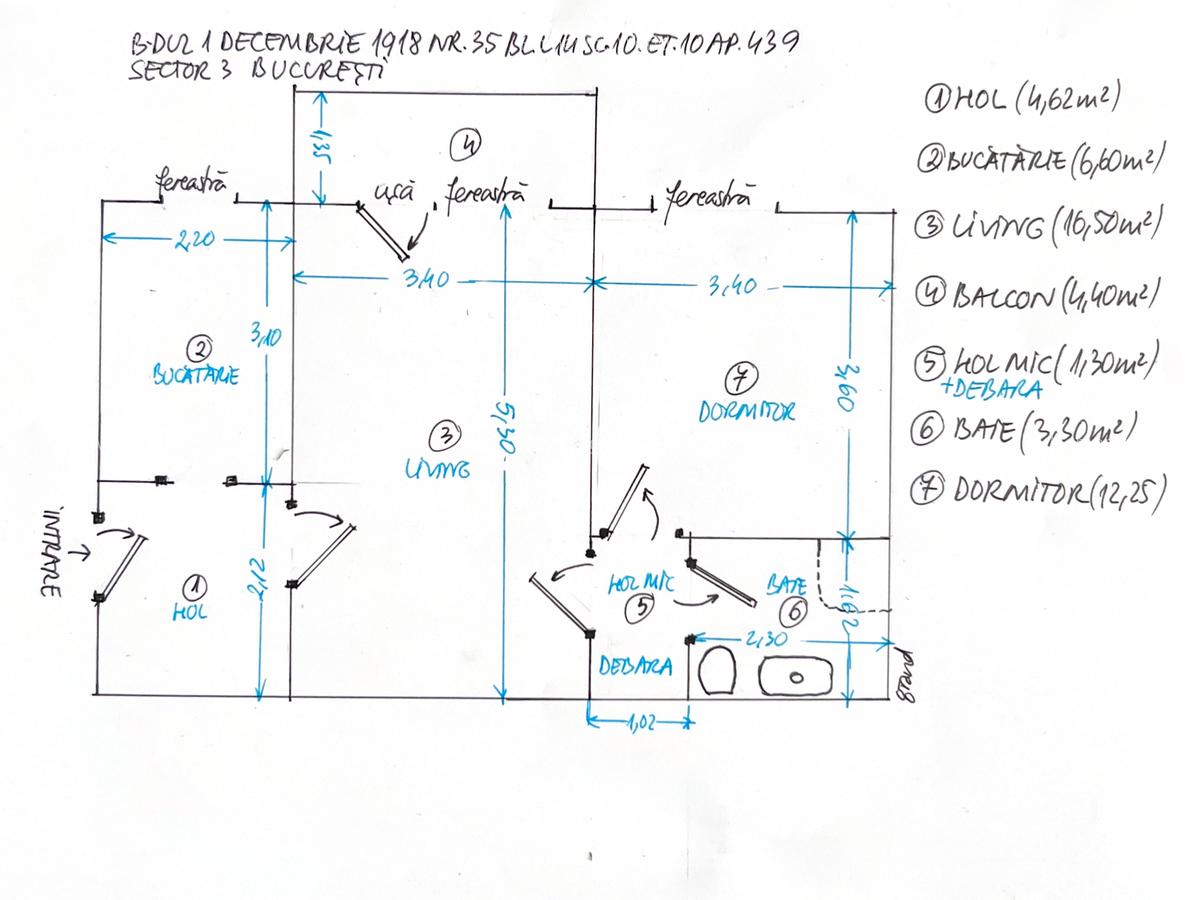 B-DUL 1 DECEMBRIE 1918 NR.35 BL.L14 SC.10. ET.10 AP.439
SECTOR 3 BUCUREȘTI
① HOL (4,62m²)
② BUCĂTĂRIE (6,60m²)
③ LIVING (16,50m²)
④ BALCON (4,40m²)
⑤ HOL MIC (1,30m²)
+DEBARA
⑥ BAIE (3,30m²)
⑦ DORMITOR (12,25)
1,35
④
fereastră
ușă
fereastră
fereastră
2,20
3,40
3,40
3,10
②
BUCĂTĂRIE
⑦
DORMITOR
3,60
③
LIVING
5,30
INTRARE
①
HOL
2,12
HOL MIC
⑤
BAIE
⑥
1,62
2,30
DEBARA
1,02